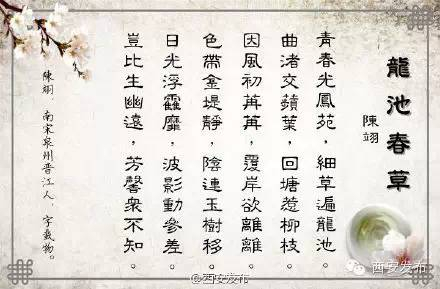 龍池春草
陳翊
青春光鳳苑，細草遍龍池。
曲渚交蘋葉，回塘惹柳枝。
因風初苒苒，覆岸欲離離。
色帶金堤靜，陰連玉樹移。
日光浮靃靡，波影動參差。
豈比生幽遠，芳馨衆不知。
陳翊，南宋泉州晋江人，字載物。
@西安发布
西安发布